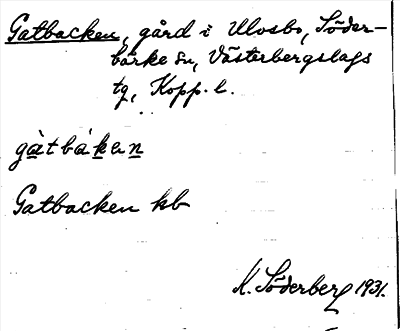 Gatbacken, gård i Ulvsbo, Söder-
bärke sn, Västerbergslags
tg, Kopp. l.
gàtbáken
Gatbacken kb
K. Söderberg 1931.